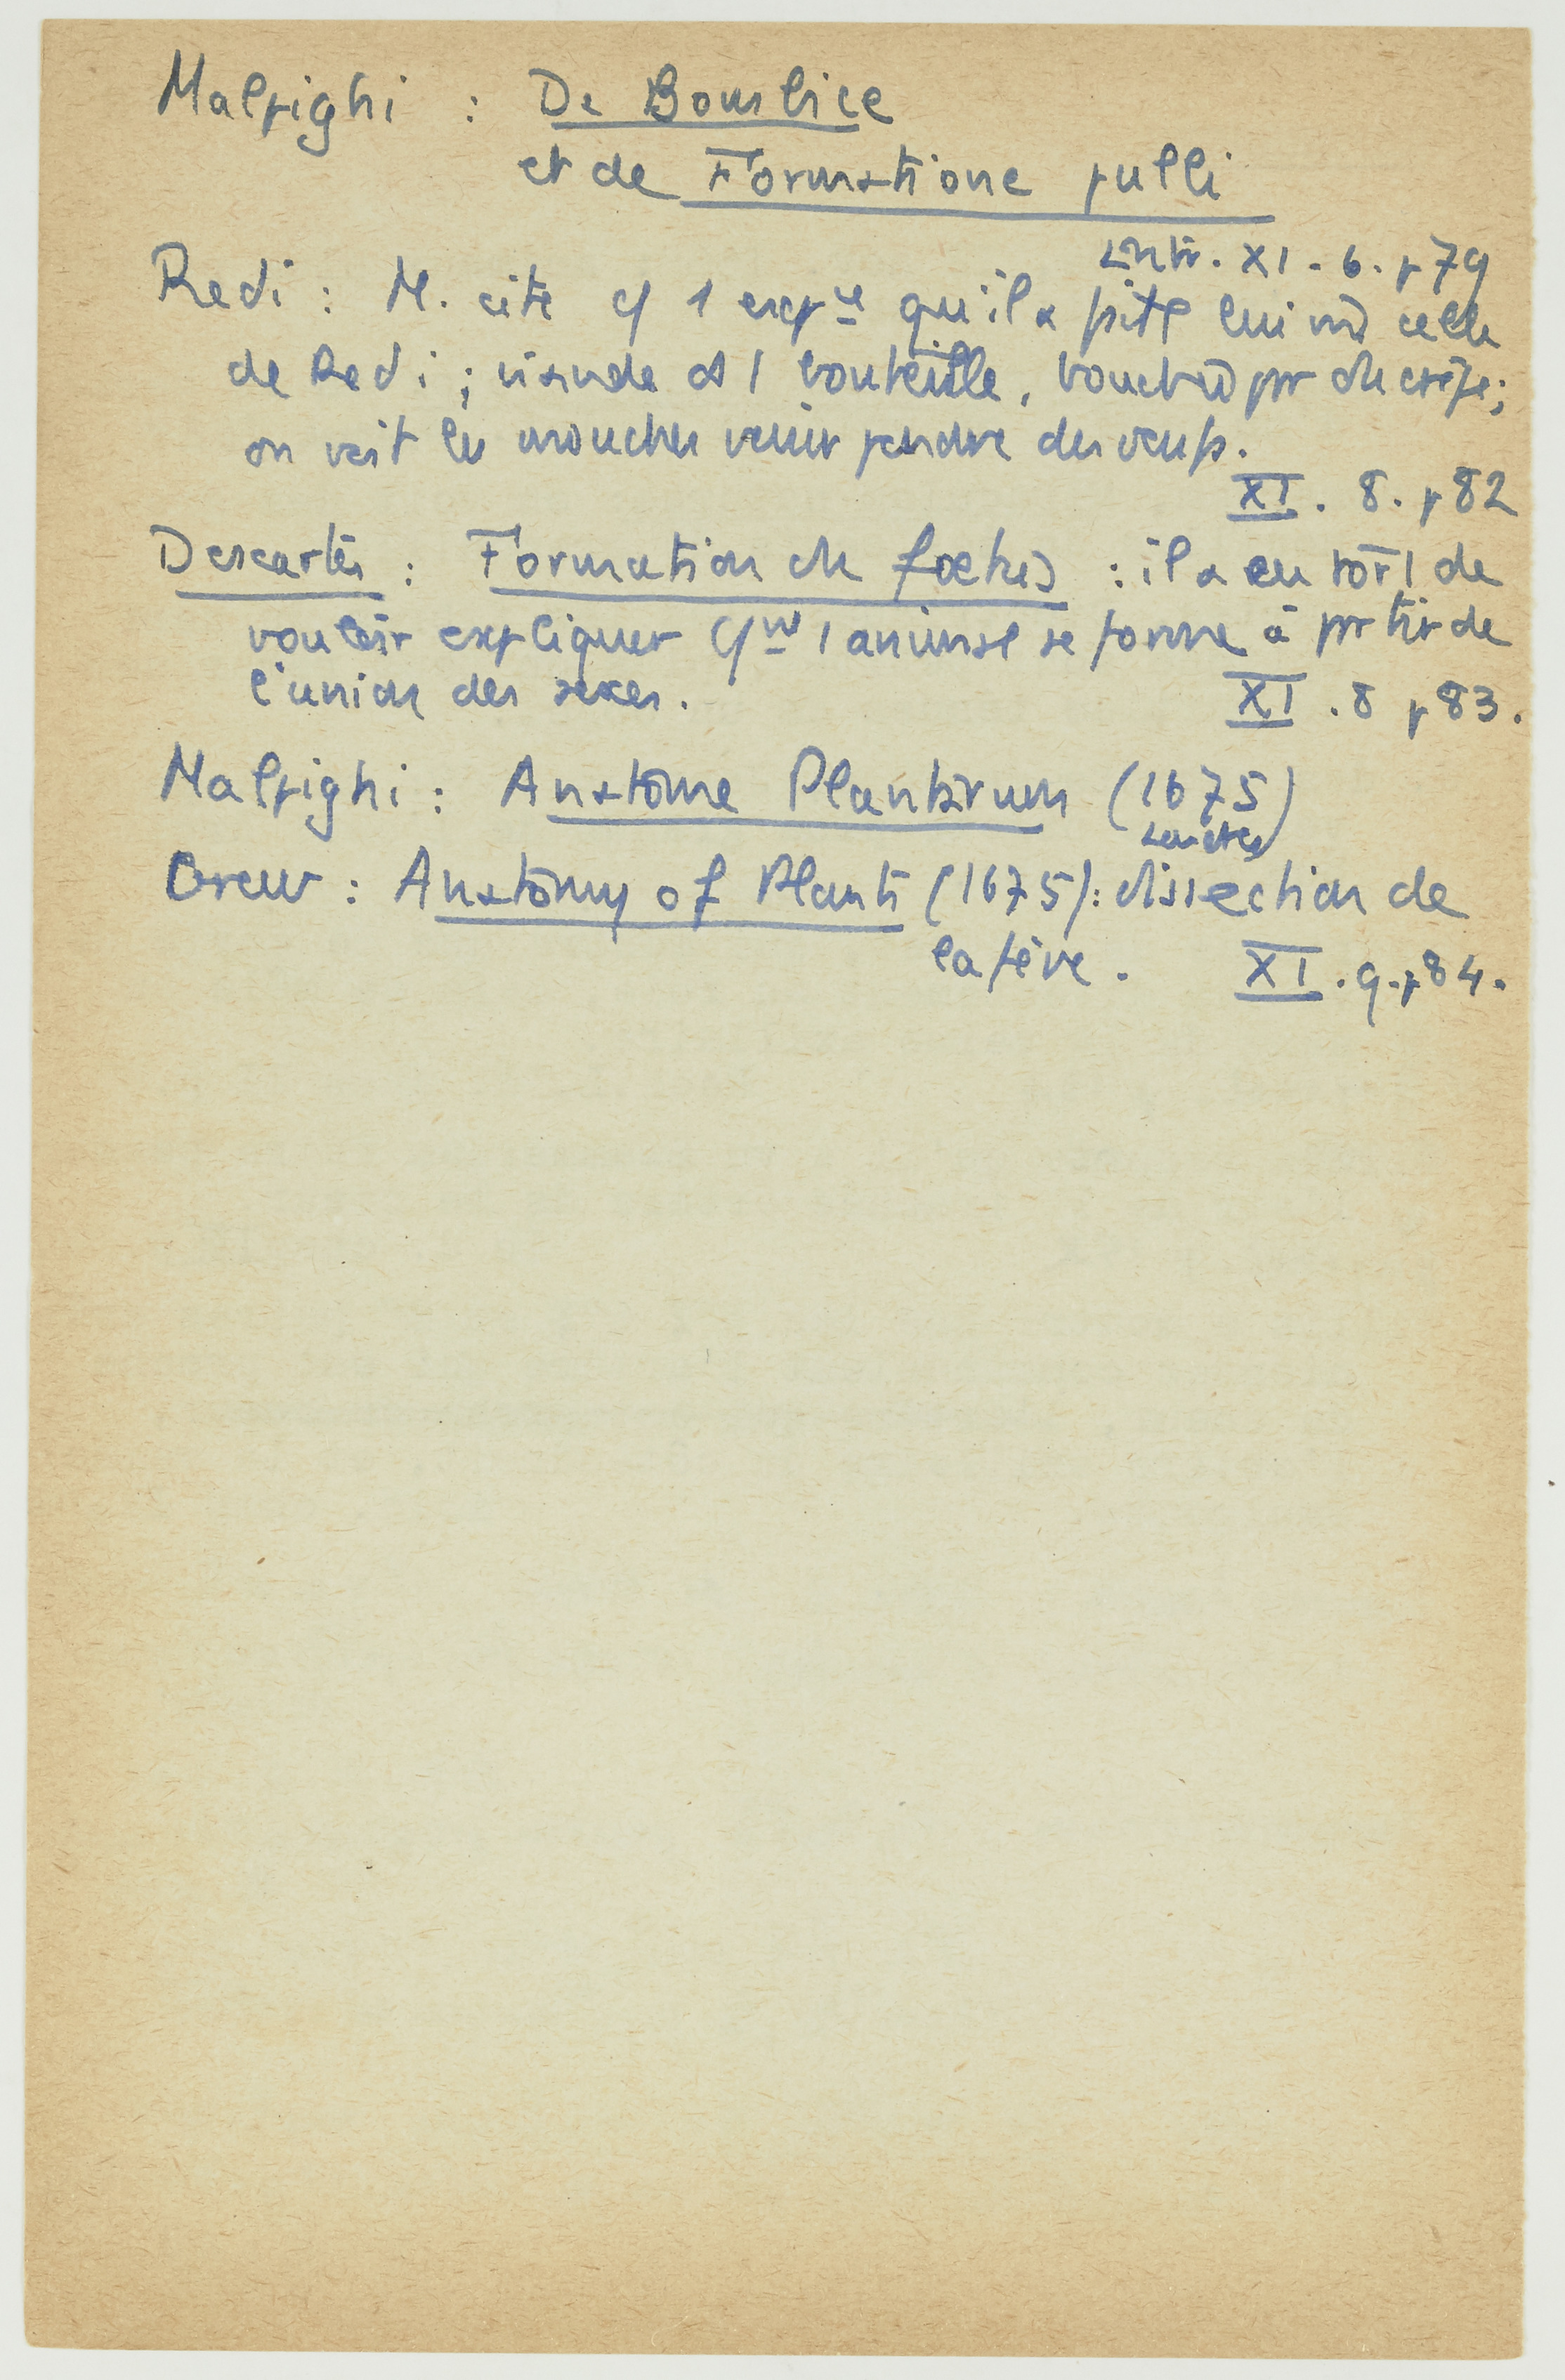 Malpighi : De Bombice
et de Formatione pulli
Entr. XI. 6. p 79
Redi : M. cite c/ 1 expce qu'il a faite lui mê celle
de Redi ; viande ds 1 bouteille, bouchée par du crêpe ;
on voit les mouches venir pendre des oeufs.
XI. 8. p 82
Descartes : Formation du foetus : il a eu tort de
vouloir expliquer c/mt 1 animal se forme à partir de
l'union des sexes.
XI . 8 p 83.
Malpighi : Anatome Plantarum (1675)
Londres
Grew : Anatomy of Plants (1675) : dissection de
la fève . XI . 9 . p 84 .